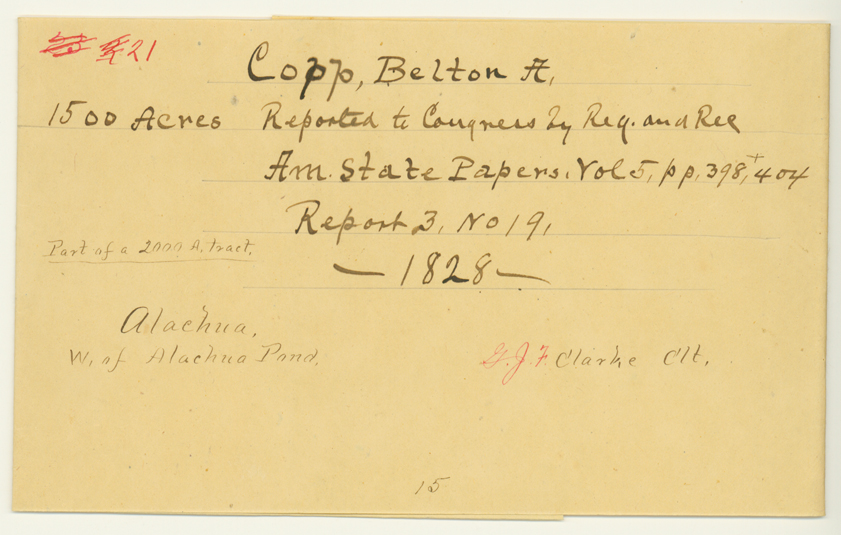 21
Copp, Belton A.
1500 Acres Reported to Congress by Reg. and Rec
Am. State Papers. Vol 5, pp. 398, + 404
Report 3, No 19,
Part of a 2000 A. tract.
— 1828 —
Alachua.
W. of Alachua Pond.
G.J.F. Clarke Clt.
15